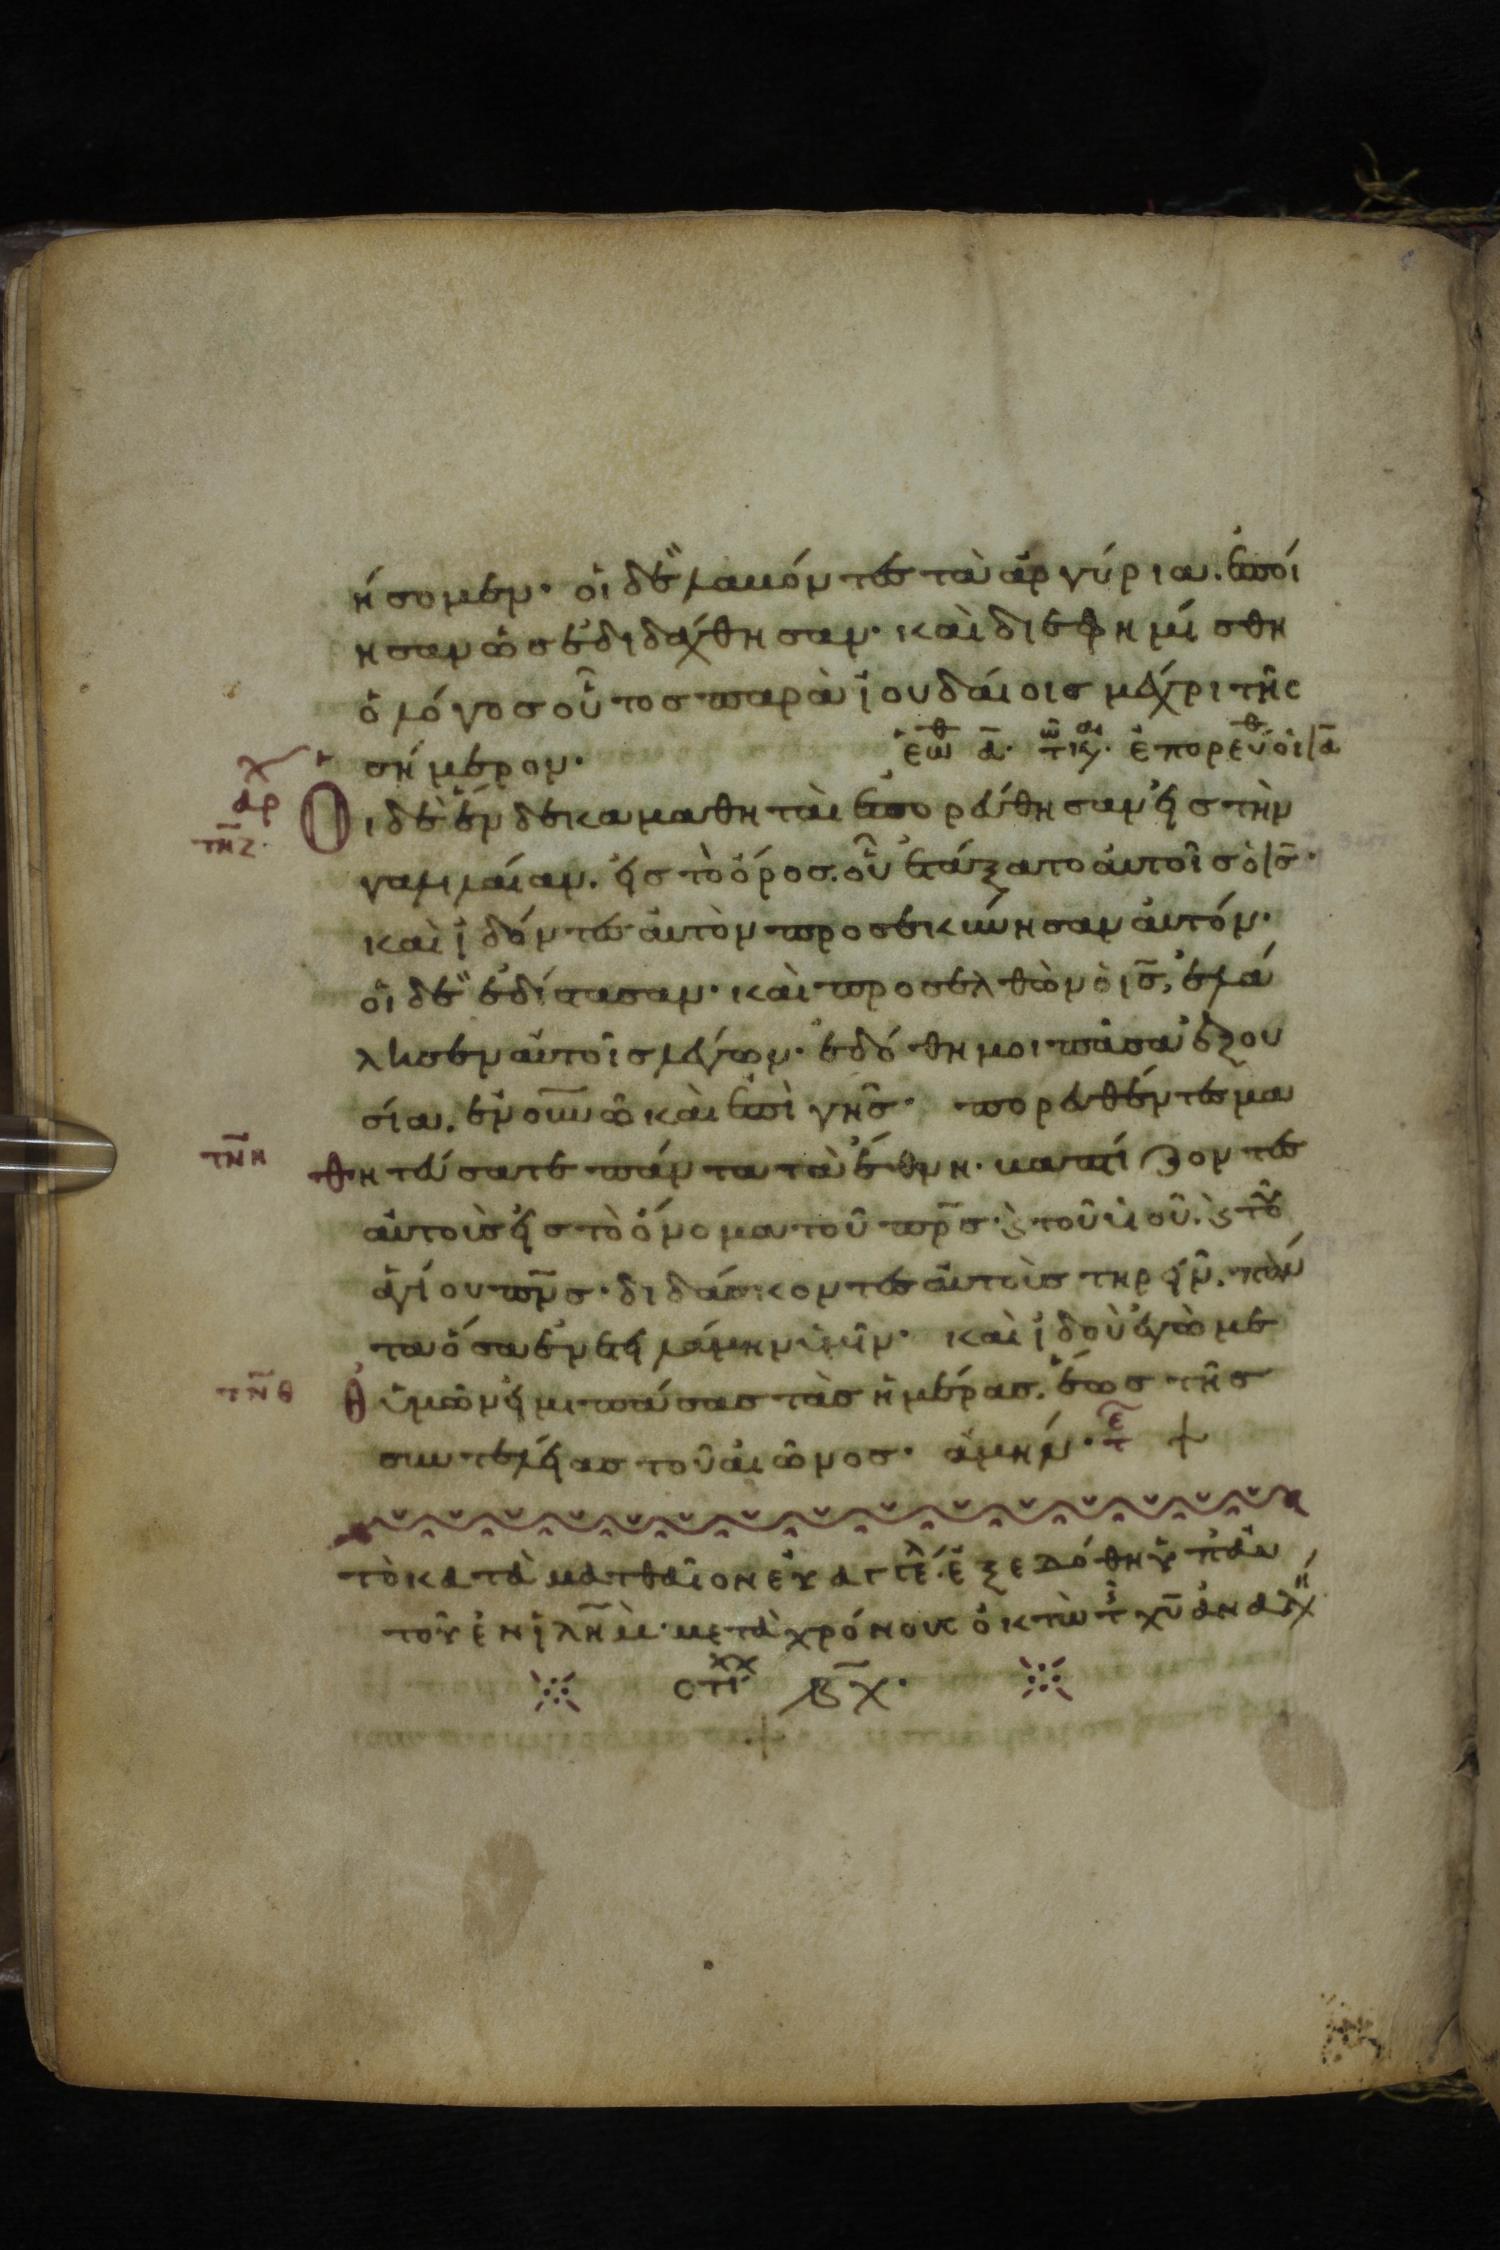 ήσομεν· οἱ δὲ λαβόντες τὰ ἀργύρια. ἐποί
ησαν ὡς ἐδιδάχθησαν· καὶ διεφημίσθη
ὁ λόγος οὗτος παρὰ ἰουδαίοις μέχρι τῆς
σήμερον·
Οἱ δὲ ἕνδεκα μαθηταὶ ἐπορεύθησαν εἰς τὴν
γαλιλαίαν. εἰς τὸ ὄρος. οὗ ἐτάξατο αὐτοῖς ὁ ις̅·
καὶ ἰδόντες αὐτὸν προσεκύνησαν αὐτόν·
οἱ δὲ ἐδίστασαν· καὶ προσελθὼν ὁ ις̅, ἐλά
λησεν αὐτοῖς λέγων· ἐδόθη μοι πᾶσα ἐξου
σία. ἐν ου̅νω̅ καὶ ἐπὶ γῆς· πορευθέντες μα
τ̅ν̅η
θητεύσατε πάντα τὰ ἔθνη· βαπτίζοντες
αὐτοὺς εἰς τὸ ὄνομα τοῦ πρ̅ς· ϗ τοῦ υἱοῦ. ϗ τοῦ
ἁγίου πν̅ς· διδάσκοντες αὐτοὺς τηρεῖν. πάν
τα ὅσα ἐνετειλάμην ὑμῖν· καὶ ἰδοὺ ἐγὼ με
τ̅ν̅θ
θ ὑμῶν εἰμι πάσας τὰς ἡμέρας. ἕως τῆς
συντελείας τοῦ αἰῶνος· ἀμήν· +
τὸ κατὰ ματθαῖον εὐαγγέλ ἐξεδόθη ὑπ αὐ
τοῦ ἐν ἰλη̅μ· μετὰ χρόνους ὀκτὼ τ χυ̅ ἀναλή
στι ͵βχ̅·